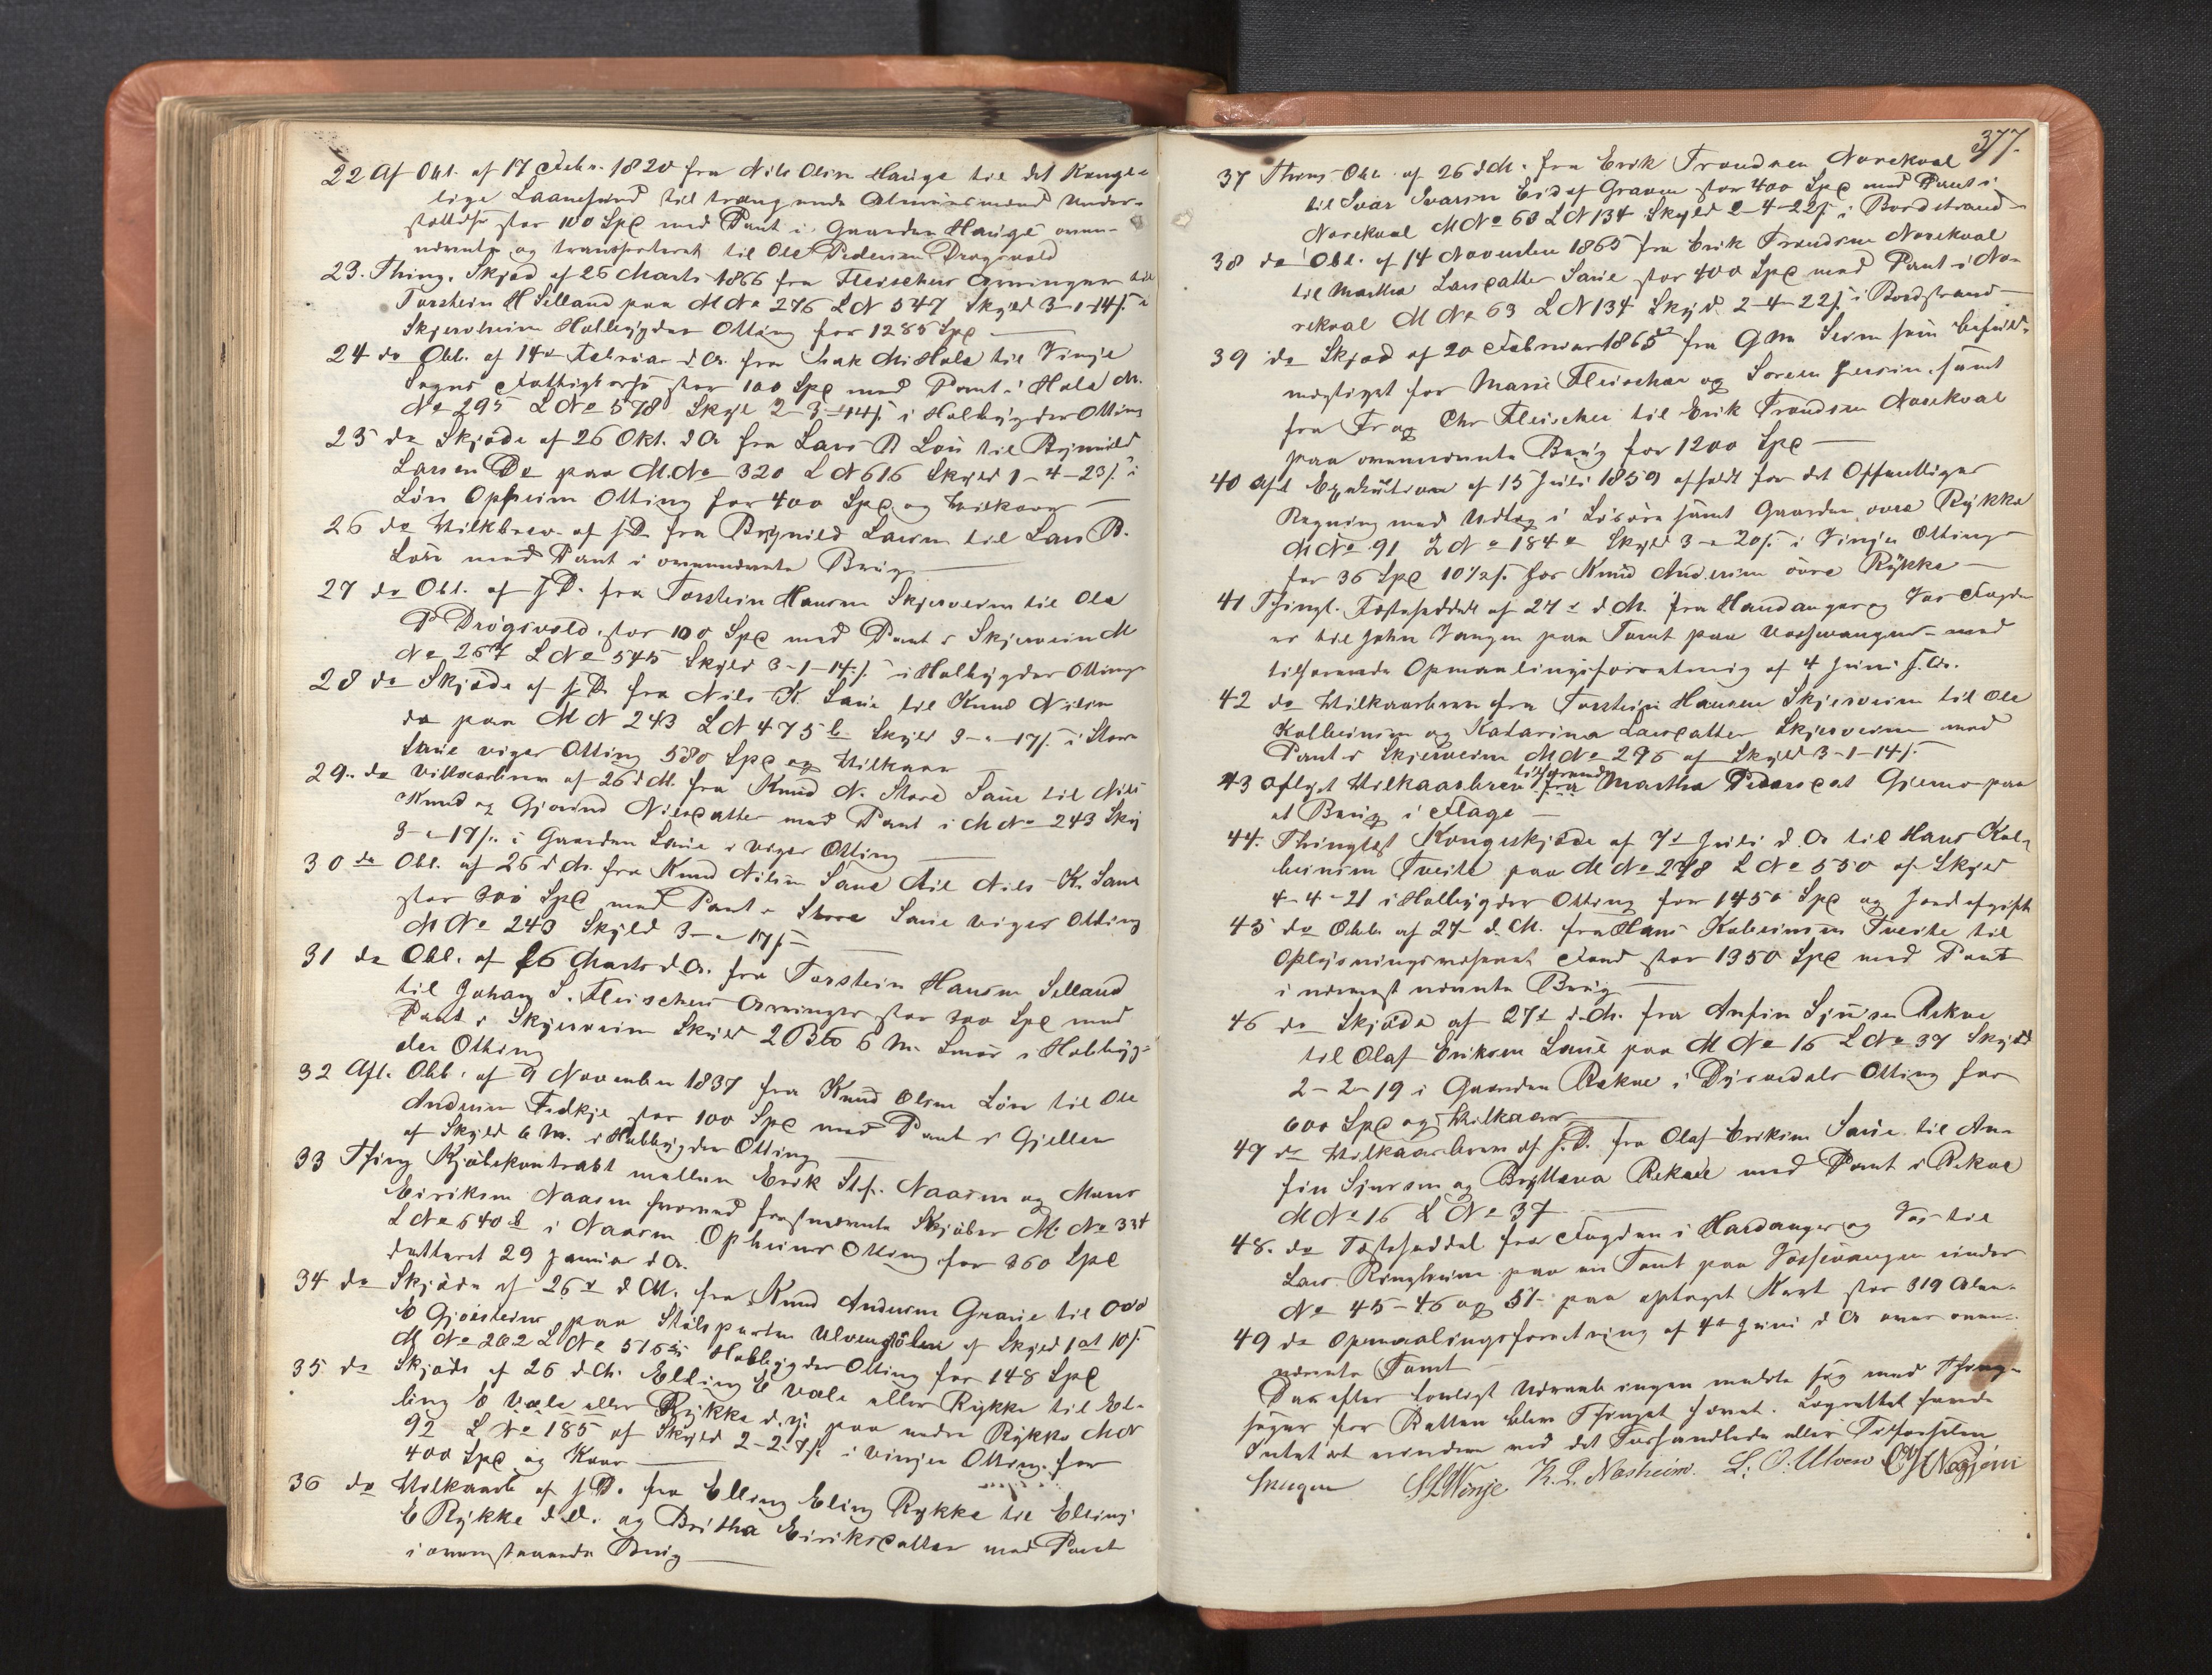 22 Af Obl. af 17 Febr. 1820 fra Nils Olsen Hauge til det Konge-
lige Laanefond til trængende Almuesmænds Under-
støttelse stor 100 Spd med Pant i Gaarden Hauge oven-
nævnte og transporteret til Ole Pedersen Drøgsvold
23. Thing. Skjøde af 26 Marts 1866 fra Fleischers Arvinger til
Torstein H Selland paa M No 276 L N 547 Skyld 3-1-14 s. i
Skjerveim Holbygder Otting for 1285 Spd
24 do Obl. af 14de Februar d A. fra Isak M Hole til Vinje
Sogns Fattigkasse stor 100 Spd med Pant i Hole M.
No 295 L No 578 Skyld 2-3-14 s. i Holbygder Otting
25 do Skjøde af 26 Okt. d A fra Lars B Løn til Brynild
Larsen Do paa M. No 320 L N 616 Skyld 1-4-23 s. i
Løn Opheim Otting for 400 Spd og Vilkaar
26 do Vilkbrev af s. D. fra Brynild Larsen til Lars B.
Løn med Pant i ovennævnte Brug
27 do Obl. af s. D. fra Torstein Hansen Skjerveim til Ole
P Drøgsvold stor 100 Spd med Pant i Skjerveim M
No 267 L No 545 Skyld 3-1-14 s. i Holbygder Otting
28 do Skjøde af s. D. fra Nils K. Saue til Knud Nilsen
do paa M N 243 L N 475 b Skyld 3-"-17 s. i Store
Saue viger Otting 580 Spd og Vilkaar
29. do Vilkaarbrev af 26 d M. fra Knud N. Store Saue til Nils
Knud og Gjørond Nilsdatter med Pant i M No 243 Skyld
3-"-17 s. i Gaarden Saue i Viger Otting
30 do Obl. af 26 d M. fra Knud Nilsen Saue til Nils K. Saue
stor 300 Spd med Pant i Store Saue Viger Otting
M No 243 Skyld 3-"-17 s
31 do Obl. af 26 Marts d A. fra Torstein Hansen Selland
til Johan S. Fleischers Arvinger stor 300 Spd med
Pant i Skjerveim Skyld 2 Bpd 6 M. Smør i Holbyg-
der Otting
32 Afl. Obl. af 9 November 1837 fra Knud Olsen Løn til Ole
Andersen Fedkje stor 100 Spd med Pant i Gjelle
af Skyld 6 M. i Holbygder Otting
33 Thing Kjøbekontrakt mellem Erik Stf. Naasen og Mons
Eiriksen Naasen hvorved førstnævnte Skjøder M. No 334
L No 640 b i Naasen Opheims Otting for 360 Spd
datteret 29 Januar d A.
34 do Skjøde af 26de d M. fra Knud Andersen Graue til Odd
E Gjøssteim paa Stølsparten Ulvenstølen af Skyld 1 ort 10 s
M No 262 L No 516 i Holbygder Otting for 148 Spd
35 do Skjøde af 26 d M. Elling E Væle eller Rykke til El-
ling E Væle eller Rykke d. y. paa nedre Rykke M N
92 L No 185 af Skyld 2-2-7 s. i Vinjes Otting for
400 Spd og Kaar
36 do Vilkaarb af s. D. fra Elling Elling Rykke til Elling
E Rykke d. Æ. og Britha Eiriksdatter med Pant
i ovenstaaende Brug
377.
37 Things Obl. af 26 d M. fra Erik Trondsen Norekval
til Ivar Ivarsen Eide af Graven stor 400 Spd med Pant i
Norekval M No 63 L N 134 Skyld 2-4-22 s. i Bordstrand
38 do Obl. af 14 November 1865 fra Erik Trondsen Norekval
til Martha Larsdatter Saue stor 400 Spd med Pant i No-
rekval M No 63 L N 134 Skyld. 2-4-22 s. i Bordstrand
39 do Skjøde af 20 Februar 1865 fra G M Seim som befuld-
mægtiget for Marie Fleischer og Sørens Enke samt
fra Fr og Chr Fleischer til Erik Trondsen Norekval
paa ovennævnte Brug for 1200 Spd
40 Afl Exekution af 15 Juli 1859 afholdt for det Offentliges
Regning med Udlæg i Løsøre samt Gaarden øvre Rykke
M No 91 L No 184 a Skyld 3-"-20 s. i Vinjes Otting
for 36 Spd 10 1/2 s. hos Knud Andersen øvre Rykke
41 Thingl. Fæsteseddel af 27de d M. fra Hardanger og Vos Fogde
er til John Vangen paa Tomt paa Vossevangen med
tilhørende Opmaalingsforretning af 4 Juni s. A.
42 do Vilkaarbrev fra Torstein Hansen Skjerveim til Ole
Kolbeinsen og Katarina Larsdatter Skjerveim med
Pant i Skjerveim M No 276 af Skyld 3-1-14 s.
43 Aflyst Vilkaarbrev tilhørende fra Martha Pedersdat Gjerno paa
et Brug i Flage
44. Thinglæst Kongeskjøde af 7de Juli d A til Hans Kol-
beinsen Tveite paa M No 278 L No 550 af Skyld
4-4-21 i Holbygder Otting for 1450 Spd og Jordafgift
45 do Obl. af 27 d. M. fra Hans Kolbeinsen Tveite til
Oplysningsvæsenets Fond stor 1350 Spd med Pant
i nærmest nævnte Brug
46 do Skjøde af 27de d. M. fra Anfin Sjursen Rekve
til Olaf Eriksen Saue paa M No 16 L No 37 Skyld
2-2-19 i Gaarden Rekve i Dyrvedals Otting for
600 Spd og Vilkaar
47 do Vilkaarbrev af s. D. fra Olaf Eriksen Saue til An-
fin Sjursen og Brytteva Rekve med Pant i Rekve
M No 16 L No 37
48. do Fæsteseddel fra Fogden i Hardanger og Vos til
Lars Ringheim paa en Tomt paa Vossevangen under
No 45-46 og 51 paa optaget Kart stor 319 Alen.
49 do Opmaalingsforretning af 4de Juni d A over oven-
nævnte Tomt
Da efter lovligt Udraab ingen meldte sig med Thing-
søger for Retten blev Thinget hævet. Lagrettet havde
Intet at erindre ved det Forhandlede eller Tilførselen
Skugen S L Vinje K. L. Nasheim. L. O. Ulven